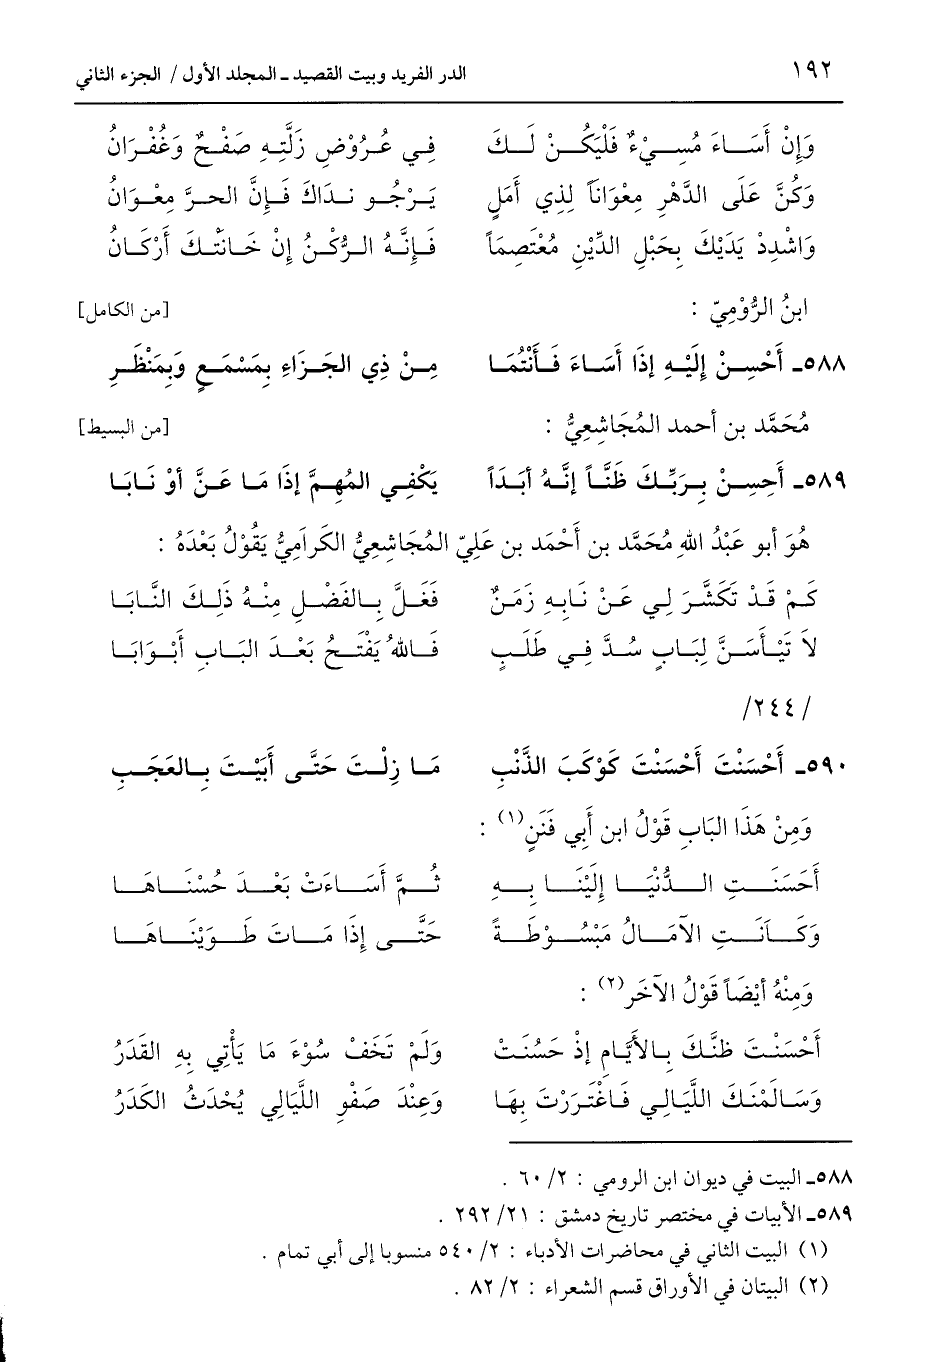 ١٩٢ الدر الفريد وبيت القصيد ـ المجلد الأول / الجزء الثاني
وَإِنْ أَسَاءَ مُسِيْءٌ فَلْيَكُنْ لَكَ فِي عُرُوْضِ زَلَّتِهِ صَفْحٌ وَغُفْرَانُ
وَكُنَّ عَلَى الدَّهْرِ مِعْوَاناً لِذِي أَمَلٍ يَرْجُو نَدَاكَ فَإِنَّ الحرَّ مِعْوَانُ
وَاشْدِدْ يَدَيْكَ بِحَبْلِ الدِّيْنِ مُعْتَصِمَاً فَإِنَّهُ الرُّكْنُ إِنْ خَانَتْكَ أَرْكَانُ
ابنُ الرُّوْمِيّ : [من الكامل]
٥٨٨ـ أَحْسِنْ إِلَيْهِ إِذَا أَسَاءَ فَأَنْتُمَا مِنْ ذِي الجَزَاءِ بِمَسْمَعٍ وَبِمَنْظَرِ
مُحَمَّد بن أحمد المُجَاشِعِيُّ : [من البسيط]
٥٨٩ـ أَحِسِنْ بِرَبِّكَ ظَنَّاً إِنَّهُ أبَدَاً يَكْفِي المُهِمَّ إِذَا مَا عَنَّ أوْ نَابَا
هُوَ أبو عَبْدُ اللهِ مُحَمَّد بن أَحْمَد بن عَلِيّ المُجَاشِعِيُّ الكَرامِيُّ يَقُوْلُ بَعْدَهُ :
كَمْ قَدْ تَكَشَّرَ لِي عَنْ نَابِهِ زَمَنٌ فَعَلَّ بِالفَضْلِ مِنْهُ ذَلِكَ النَّابَا
لاَ تَيْأَسَنَّ لِبَابٍ سُدَّ فِي طَلَبٍ فَاللهُ يَفْتَحُ بَعْدَ البَابِ أَبْوَابَا
/٢٤٤/
٥٩٠ـ أَحْسَنْتَ أَحْسَنْتَ كَوْكَبَ الذَّنْبِ مَا زِلْتَ حَتَّى أَبَيْتَ بِالعَجَبِ
وَمِنْ هَذَا البَابِ قَوْلُ ابن أَبِي فَنَنٍ(١) :
أَحَسَنَتِ الدُّنْيَا إِلَيْنَا بِهِ ثُمَّ أَسَاءَتْ بَعْدَ حُسْنَاهَا
وَكَاَنَتِ الآمَالُ مَبْسُوْطَةً حَتَّى إِذَا مَاتَ طَوَيْنَاهَا
وَمِنْهُ أيْضَاً قَوْلُ الآخَرِ(٢) :
أَحْسَنْتَ ظنَّكَ بِالأيَّامِ إِذْ حَسُنَتْ وَلَمْ تَخَفْ سُوْءَ مَا يَأْتِي بِهِ القَدَرُ
وَسَالَمْتكَ اللَّيَالِي فَاغْتَرَرْتَ بِهَا وَعِنْدَ صَفْوِ اللَّيَالِي يُحْدَثُ الكَدَرُ
٥٨٨ـ البيت في ديوان ابن الرومي : ٢/ ٦٠ .
٥٨٩ـ الأبيات في مختصر تاريخ دمشق : ٢١/ ٢٩٢ .
(١) البيت الثاني في محاضرات الأدباء : ٢/ ٥٤٠ منسوبا إلى أبي تمام .
(٢) البيتان في الأوراق قسم الشعراء : ٢/ ٨٢ .